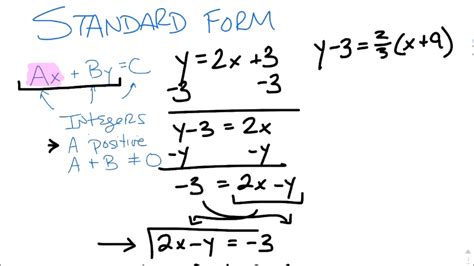 STANDARD FORM
Ax + By = C
Integers
A positive
A + B ≠ 0
y = 2x + 3
-3 -3
y-3 = 2x
-y -y
-3 = 2x-y
2x-y = -3
y-3 = 2/3 (x+9)